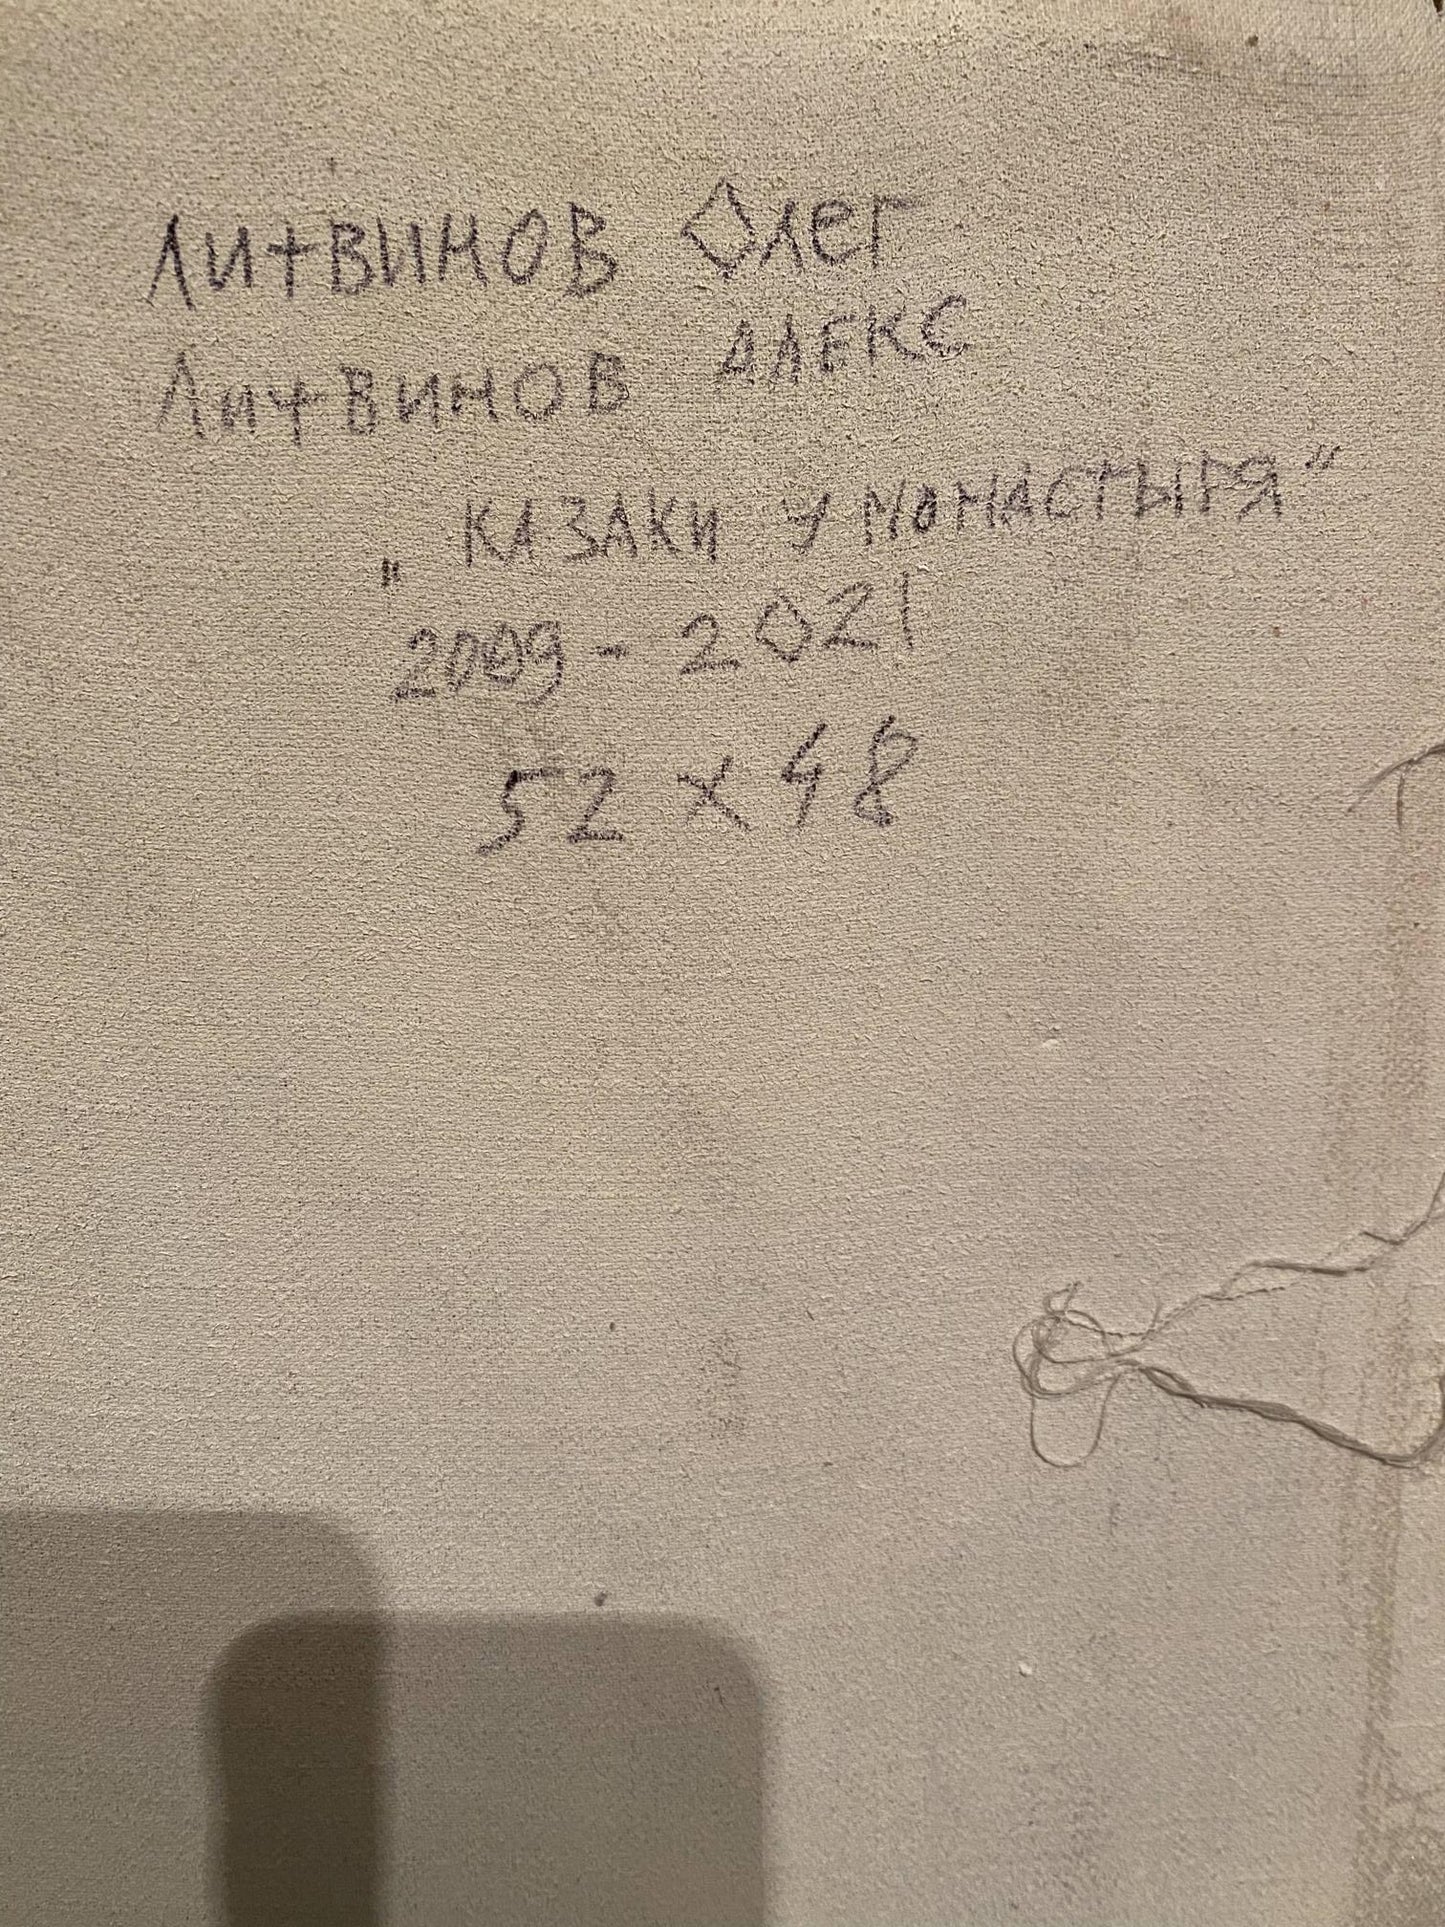 Литвинов Олег
Литвинов АЛЕКС
„КАЗАКИ У МОНАСТЫРЯ"
2009 - 2021
52 x 48